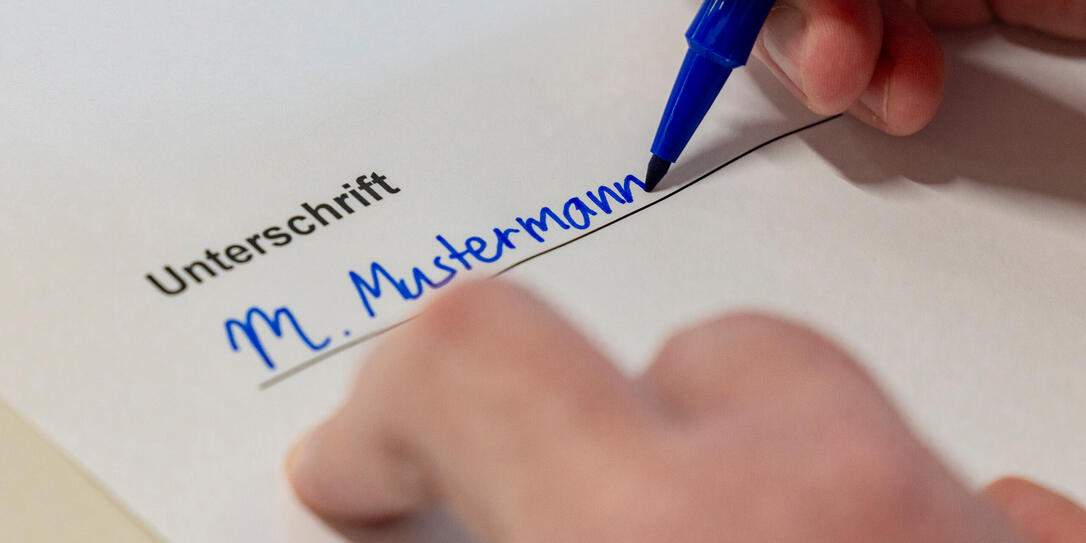 Unterschrift
M. Mustermann